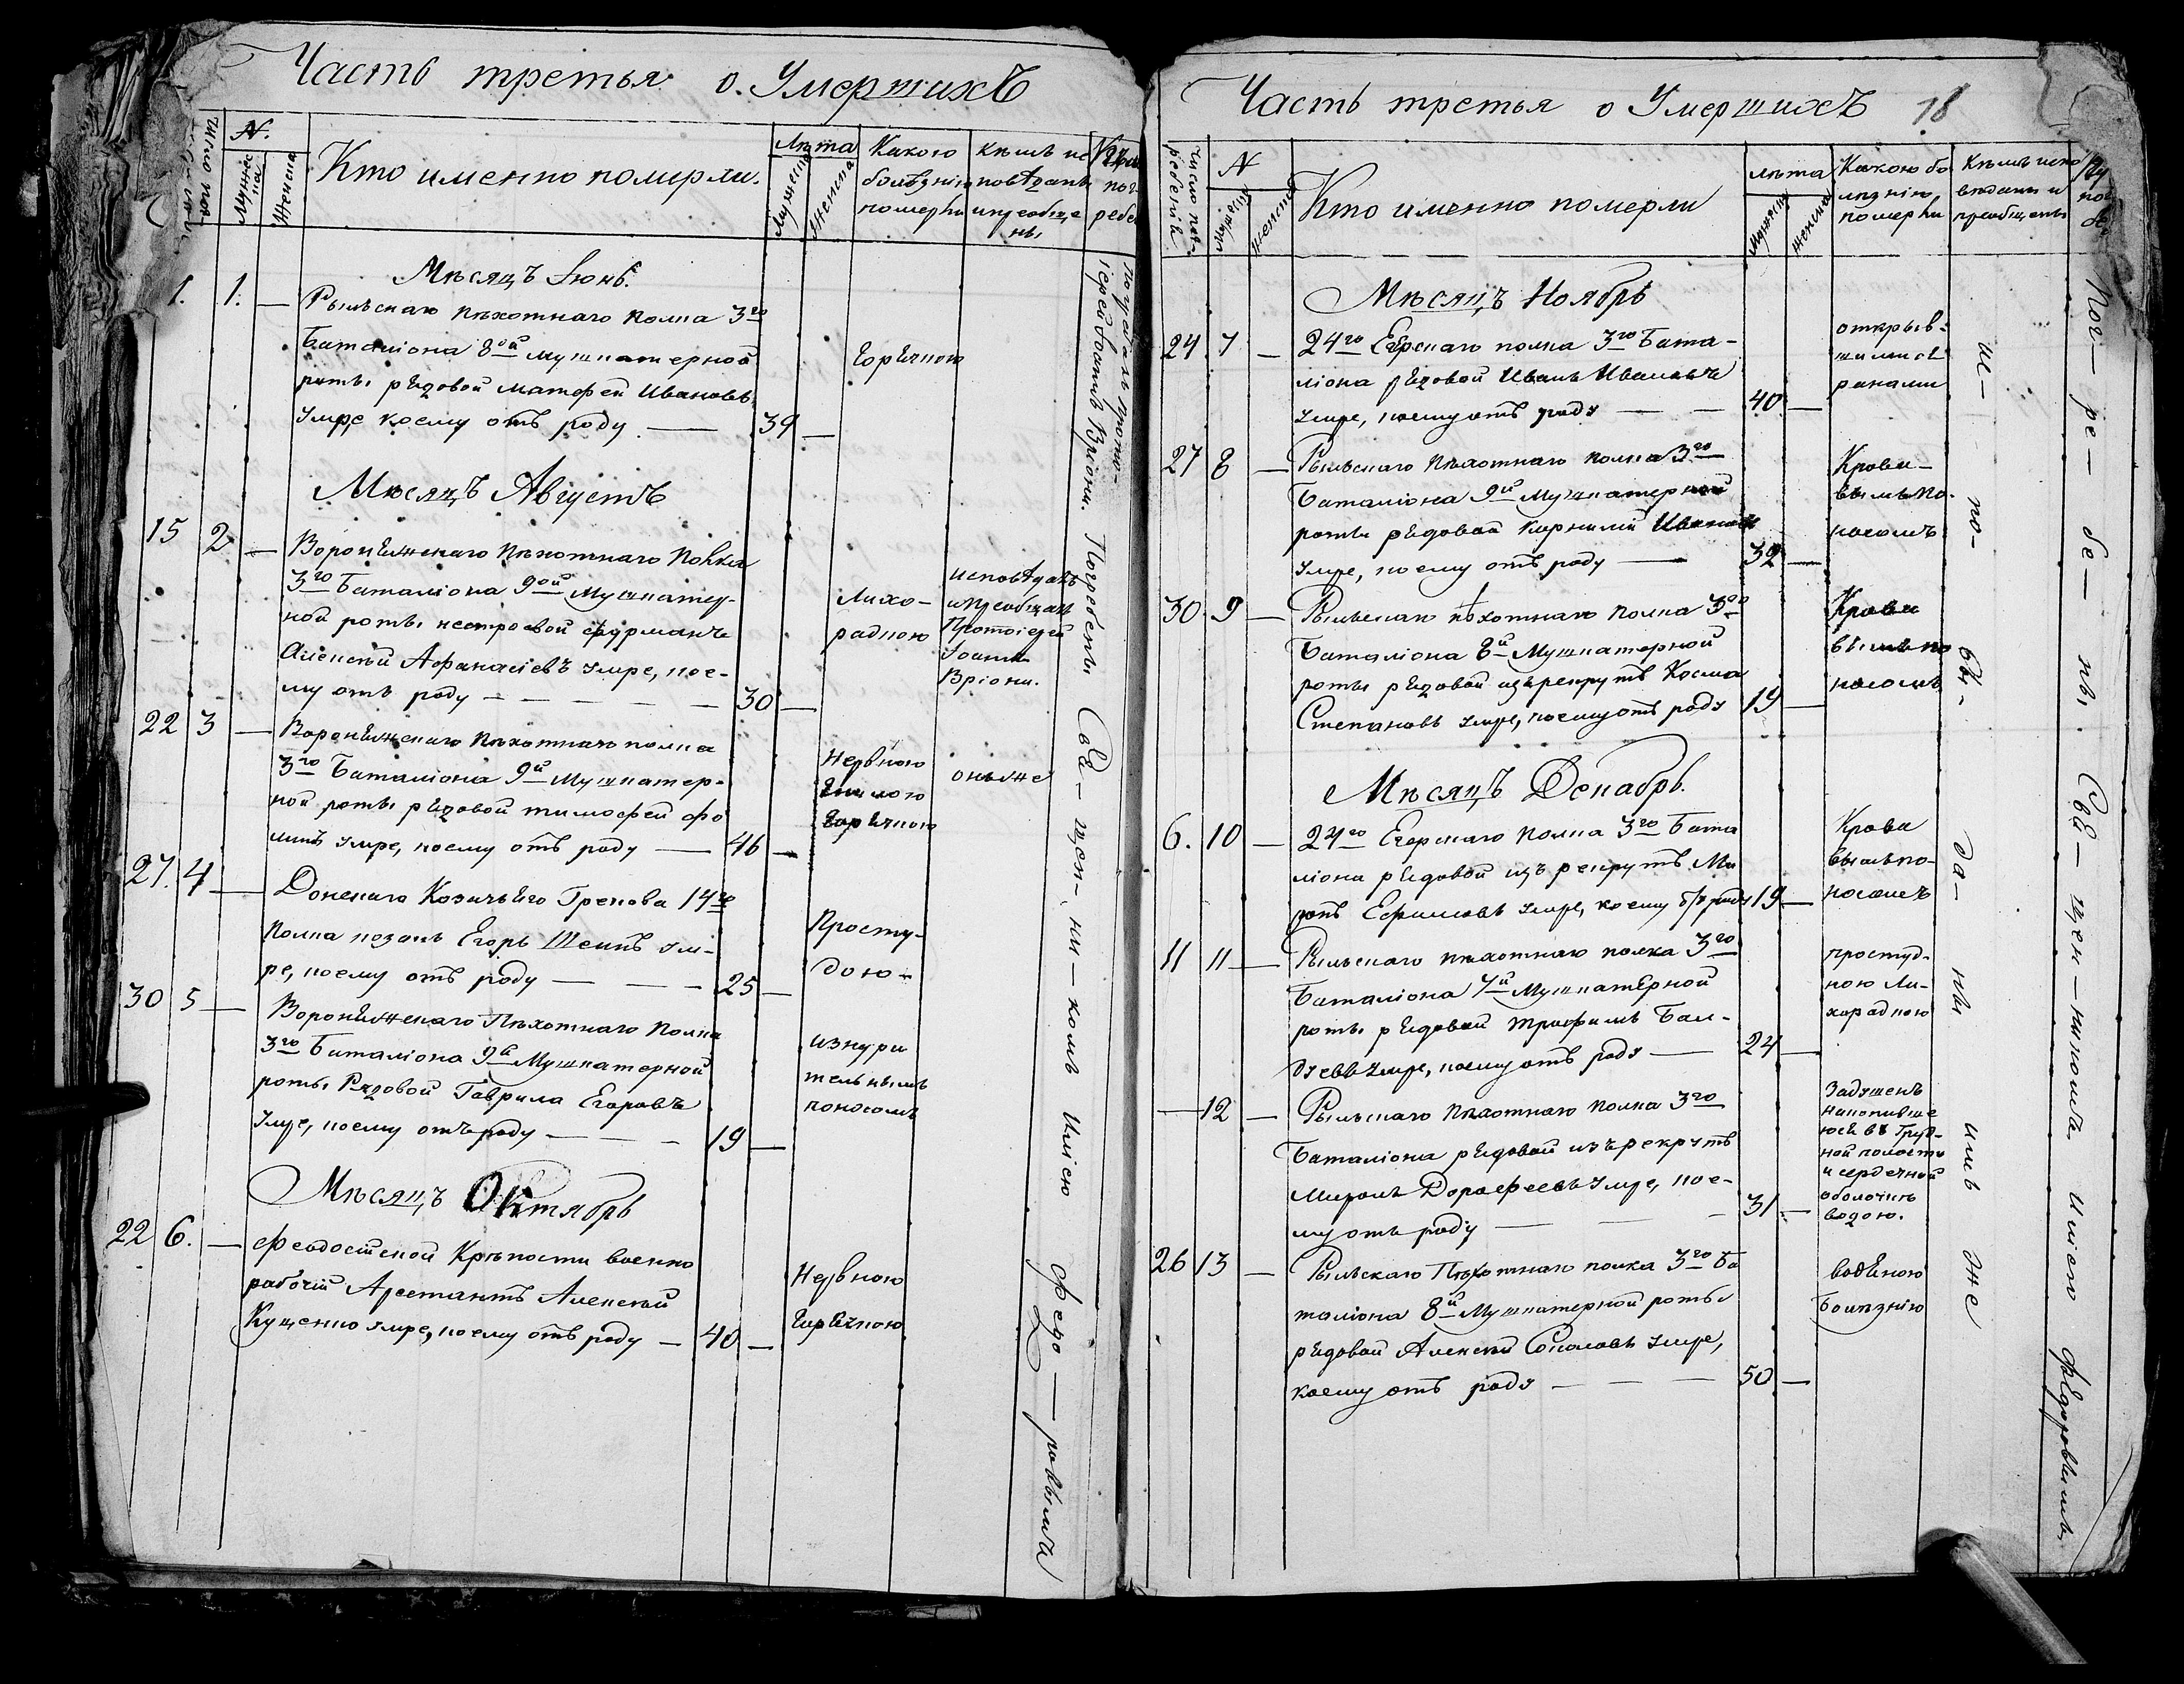 Часть третья о Умершихъ
Число
N.
Мужеска
Женска
Кто именно померли.
Лѣта
Мужеска
Женска
Какою
болѣзнію
померли
Кѣмъ ис
повѣданы
и преобще
ны
пог-
ребе
Мѣсяцъ Іюнь.
1. 1. — Рыльскаго пѣхотнаго полка 3го
Баталіона 8ой мушкатерной
роты рядовой Матфей Ивановъ
умре, коему отъ роду — 39 —
Горячкою
Мѣсяцъ Августъ
15 2 — Воронежскаго пѣхотнаго полка
3го Баталіона 9ой Мушкатер-
ной роты нестроевой фурманъ
Алексѣй Афанасіевъ умре, кое-
му отъ роду — — — — — 30 —
Лихо-
радкою
исповѣдалъ
и преобщалъ
Протоіерей
Іоаннъ
Вріони.
22 3 — Воронежскаго пѣхотнаго полка
3го Баталіона 9й Мушкатер-
ной роты рядовой Тимофей Фо
минъ умре, коему отъ роду — 46 —
Нервною
Гнилою
Горячкою
онъ же
27. 4 — Донскаго Козачьяго Грекова 14го
полка козакъ Егоръ Шеинъ ум-
ре, коему отъ роду — — — 25 —
Просту-
дою-
30 5 — Воронежскаго Пѣхотнаго Полка
3го Баталіона 9й Мушкатерной
роты Рядовой Гаврила Егоровъ
умре, коему отъ роду — — — 19 —
изнури
тельнымъ
поносомъ
Мѣсяцъ Октябрь
22 6. — Феодосійской Крѣпости военно
рабочій Арестантъ Алексѣй
Кущенко умре, коему отъ роду — 40 —
Нервною
Горячкою
іерей Іоаннъ Вріони. Погребены Свя-щен-ни-комъ Иліею Федо-ровымъ
Часть третья о Умершихъ 18
число пог-
ребеній
N
Мужеска
Женска
Кто именно померли
лѣта
Мужеска
Женска
Какою бо
лѣзнію
померли
Кѣмъ испо
вѣданы и
преобщены
Мѣсяцъ Ноябрь
24 7 — 24го Егерскаго полка 3го Бата-
ліона рядовой Иванъ Ивановъ
умре, коему отъ роду — — 40 —
открыв-
шимися
ранами
27 8 — Рыльскаго пѣхотнаго полка 3го
Баталіона 9й Мушкатерной
роты рядовой Корнилій Ивановъ
умре, коему отъ роду — 32 —
Крова-
вымъ по-
носомъ
30 9 — Рыльскаго пѣхотнаго полка 3го
Баталіона 8й Мушкатерной
роты рядовой изъ рекрутъ Косма
Степановъ умре, коему отъ роду 19 —
Крова
вымъ по
носомъ
Мѣсяцъ Декабрь.
6. 10 — 24го Егерскаго полка 3го Бата
ліона рядовой изъ рекрутъ Ми
ронъ Ефимовъ умре, коему отъ роду 19 —
Крова
вымъ по-
носомъ
11 11 — Рыльскаго пѣхотнаго полка 3го
Баталіона 7й Мушкатерной
роты рядовой Трофимъ
умре, коему отъ роду — 24 —
простуд-
ною Ли-
хорадкою
— 12 — Рыльскаго пѣхотнаго полка 3го
Баталіона рядовой изъ рекрутъ
Миронъ Дорофеевъ умре, кое-
му отъ роду — — — 31 —
Задушенъ
накопивше
юся въ Груд-
ной полости
и сердечной
оболочкѣ
водою.
26 13 — Рыльскаго Пѣхотнаго полка 3го Ба
таліона 8й Мушкатерной роты
рядовой Алексѣй Соколовъ умре,
коему отъ роду — — — 50 —
водяною
Болѣзнію
ис- по- вѣ- да- ны имъ же
Пог-ре-бе-ны Свя-щен-никомъ Иліею Федоровымъ